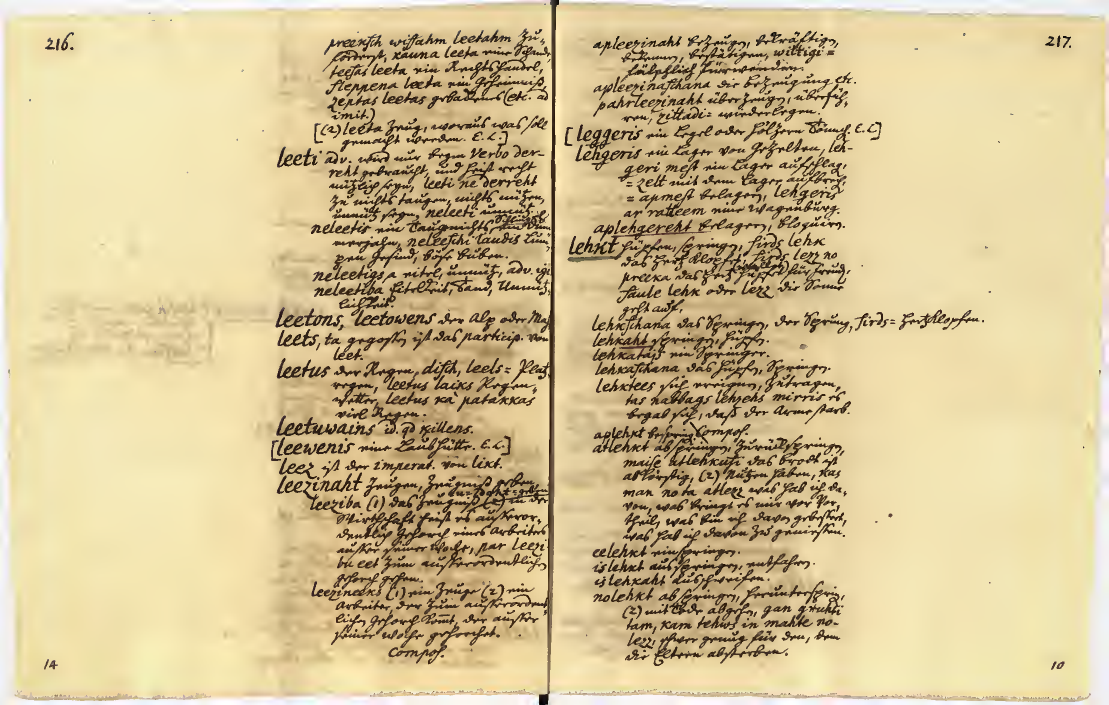 216.
preeksch wissahm leetahm zu-
förderst, kauna leeta eine Schande,
teesas leeta ein Rechtshandel,
sleppena leeta ein Geheimniß,
zeptas leetas gebackens (etc. ad
imit.)
[(2) leeta Zeug, woraus was soll
gemacht werden. E. L.]
leeti adv. wird nur beym Verbo der-
reht gebraucht, und heist recht
nützlich seyn, leeti ne derreht
zu nichts taugen, nichts nützen,
unnütz seyn, neleeti unnütz
neleetis ein Taugnichts,
neleeschi laudis Lum-
pen Gesind, böse Buben.
neleetiga eitel, unnütz, adv. igi
neleetiba Eitelkeit, Tand, Unnütz-
lichkeit.
leetons, leetowens der Alp oder
leets, ta gegossen ist das particip. von
leet.
leetus der Regen, disch, leels = Platz-
regen, leetus laiks Regen-
wetter, leetus ka patakkas
viel Regen.
leetuwains id. qd killens.
[leewenis eine Laubhütte. E. L.]
leez ist der imperat. von likt.
leezinaht Zeugen, Zeugniß geben,
leeziba (1) das Zeugniß (2) in der
Wirthschaft heist es ausseror-
dentlich Gehorch eines Arbeiters
ausser seiner Woche, par leezi
bu eet zum ausserordentlichen
Gehorch gehen.
leezineeks (1) ein Zeuge (2) ein
Arbeiter, der zum ausserordent
lichen Gehorch komt, der ausser
seiner Woche gehorchet.
Compos.
14
217.
apleezinaht bezeugen, bekräftigen,
bekennen, bestätigen, wiltigi =
fälschlich fürwenden.
apleezinaschana die Bezeugung etc.
pahrleezinaht überzeugen, überfüh-
ren, zittadi = wiederlegen.
[leggeris ein Legel oder hölzern E. L.]
lehgeris ein Lager von Gezelten, leh-
geri mest ein Lager aufschlag,
= zelt mit dem Lager aufbrech
= apmest belagern, lehgeris
ar ratteem eine Wagenburg.
aplehgereht belagern, bloquiren.
lehkt hüpfen, springen, sirds lehk
das Herz klopfet, sirds lezz no
preeka das Herz hüpfet für Freud,
saule lehk oder lezz die Sonne
geht auf,
lehkschana das Springen, der Sprung, sirds = Hertzklopfen.
lehkaht springen, hüpfen.
lehkatajs ein Springer.
lehkaschana das hüpfen, Springen.
lehktees sich ereignen, zutragen,
tas nabbags lehzehs mirris es
begab sich, daß der Arme starb.
Compos.
aplehkt bespringen
atlehkt abspringen, zurückspringen,
maise atlehkusi das Brodt ist
abborstig, (2) Nutzen haben, kas
man no ta atlezz was hab ich da-
von, was bringt es mir vor Vor-
theil, was bin ich davon gebessert,
was hab ich davon zu geniessen.
eelehkt einspringen.
islehkt ausspringen, entfahren.
islehkaht ausschweifen.
nolehkt abspringen, herunterspringen,
(2) mit Tode abgehen, gan gruhti
tam, kam tehws in mahte no-
lezz, schwer genug für den, dem
die Eltern absterben.
10